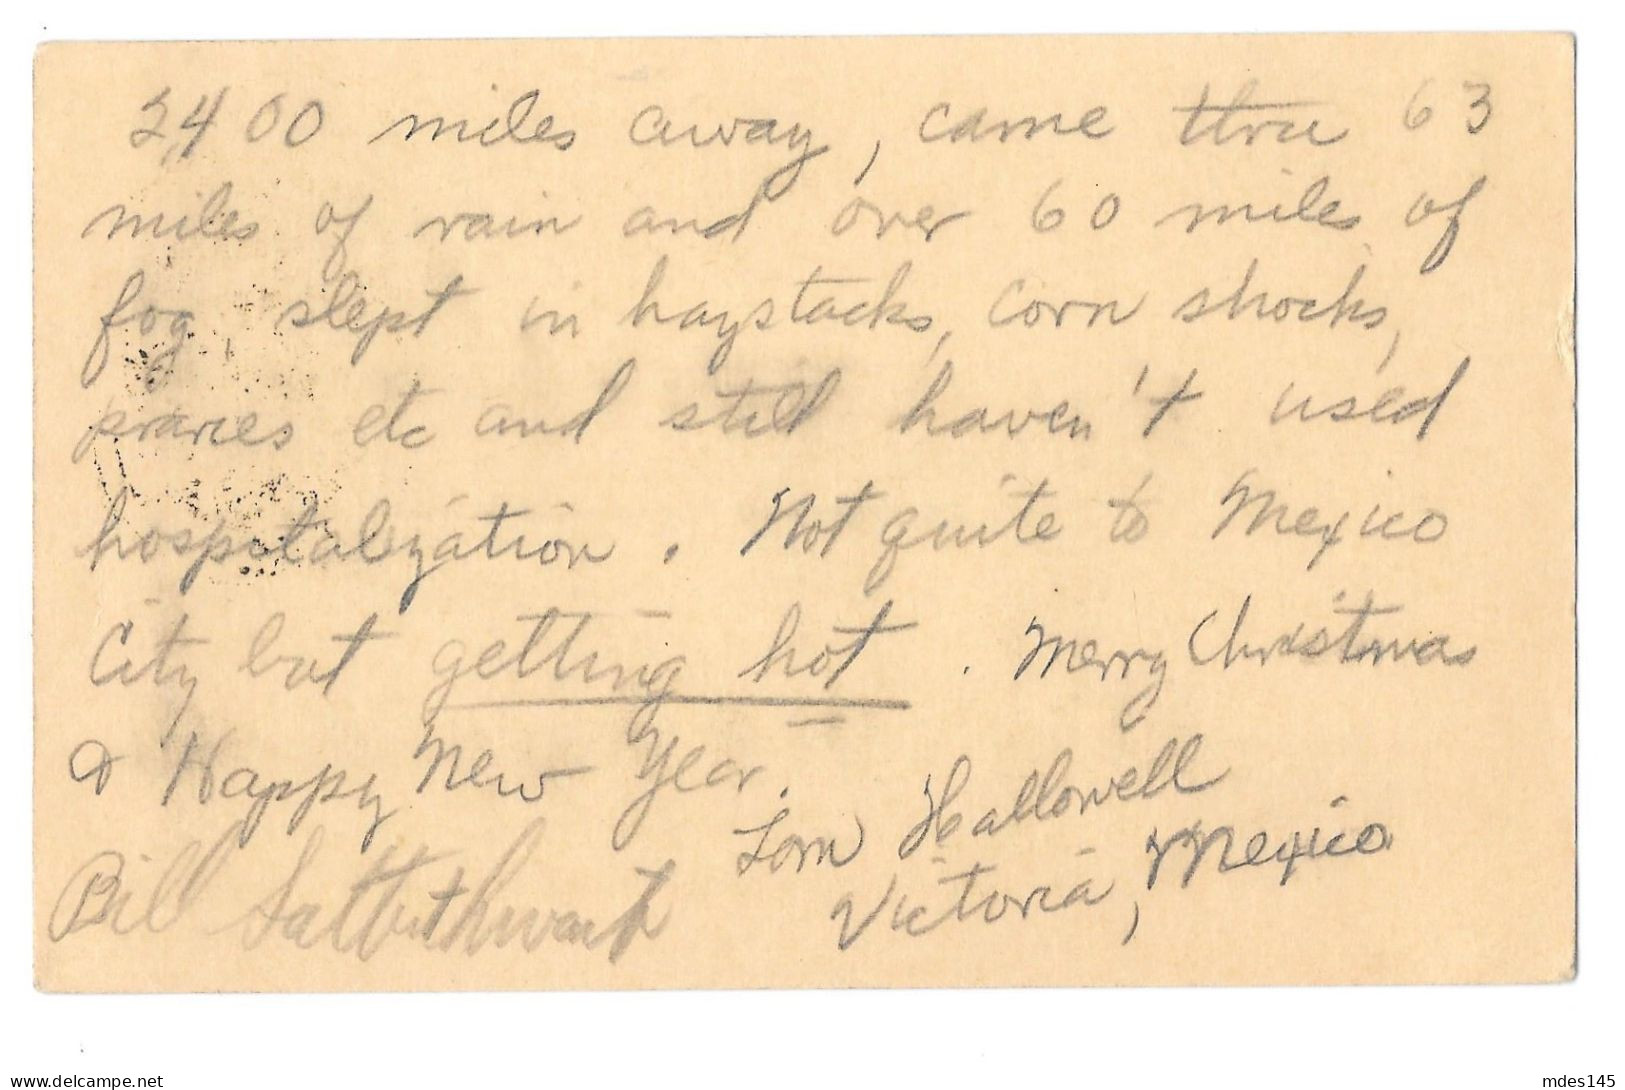 2400 miles away, came thru 63
miles of rain and over 60 miles of
fog, slept in haystacks, corn shocks,
praries etc and still haven't used
hospitalization. Not quite to Mexico
City but getting hot. Merry Christmas
& Happy New Year.
Tom Hallowell
Victoria, Mexico
Bill Satterthwait
mdes145